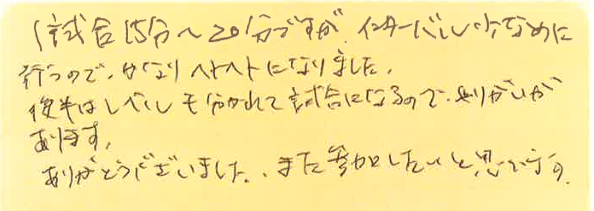 1試合15分〜20分ですが、インターバル少なめに
行うので、かなりヘトヘトになりました。
後半はレベルも分かれて試合になるので、やりがいが
あります。
ありがとうございました。また参加したいと思います。